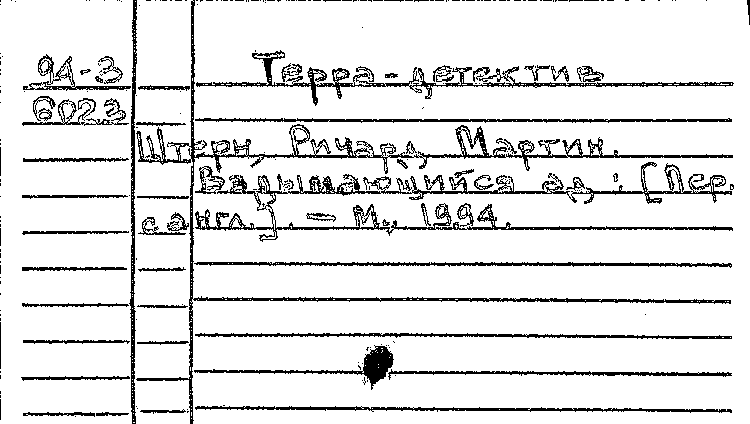 94-3 Терра-детектив
6023
Штерн, Ричард Мартин.
Вздымающийся ад : [Пер.
с англ.]. - М., 1994.